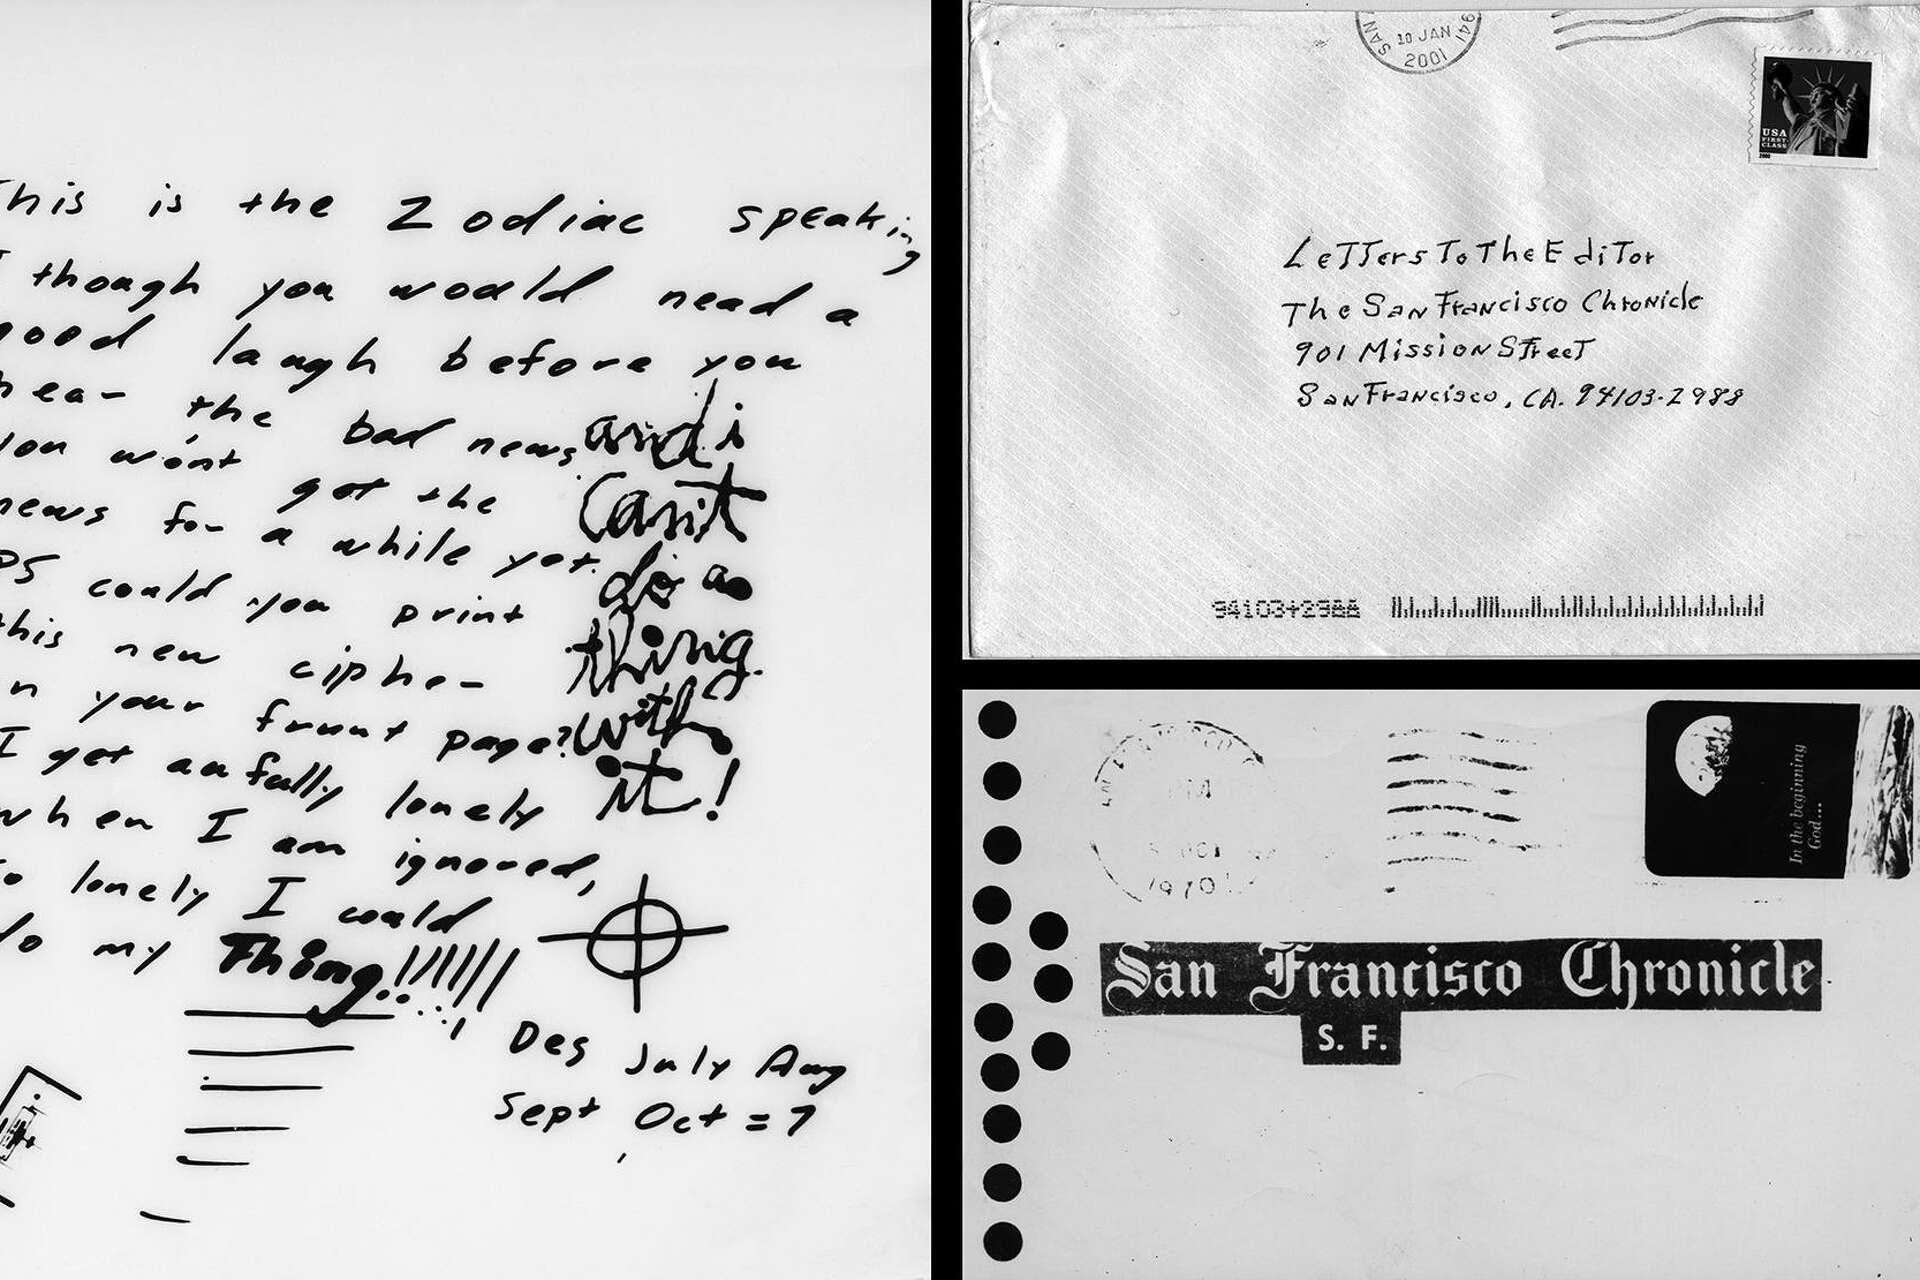 This is the Zodiac speaking
I though you would nead a
good laugh before you
hear the bad news
you won't get the
news for a while yet.
PS could you print
this new cipher
in your frunt page?
I get aufully lonely
when I am ignored,
So lonely I could
do my Thing!!!!!!
and i
Can't
do a
thing
with
it!
Des July Aug
Sept Oct = 7
SAN 941
10 JAN
2001
USA
FIRST-
CLASS
2000
LeTTers To The EdiTor
The San Francisco Chronicle
901 Mission STreeT
San Francisco, CA. 94103-2988
94103+2988
PM
1970
In the beginning
God...
San Francisco Chronicle
S. F.